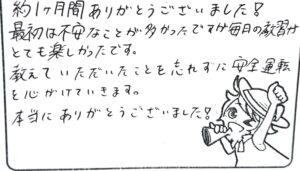 約1ヶ月間ありがとうございました!
最初は不安なことが多かったですが毎日の教習が
とても楽しかったです。
教えていただいたことを忘れずに安全運転
を心がけていきます。
本当にありがとうございました!